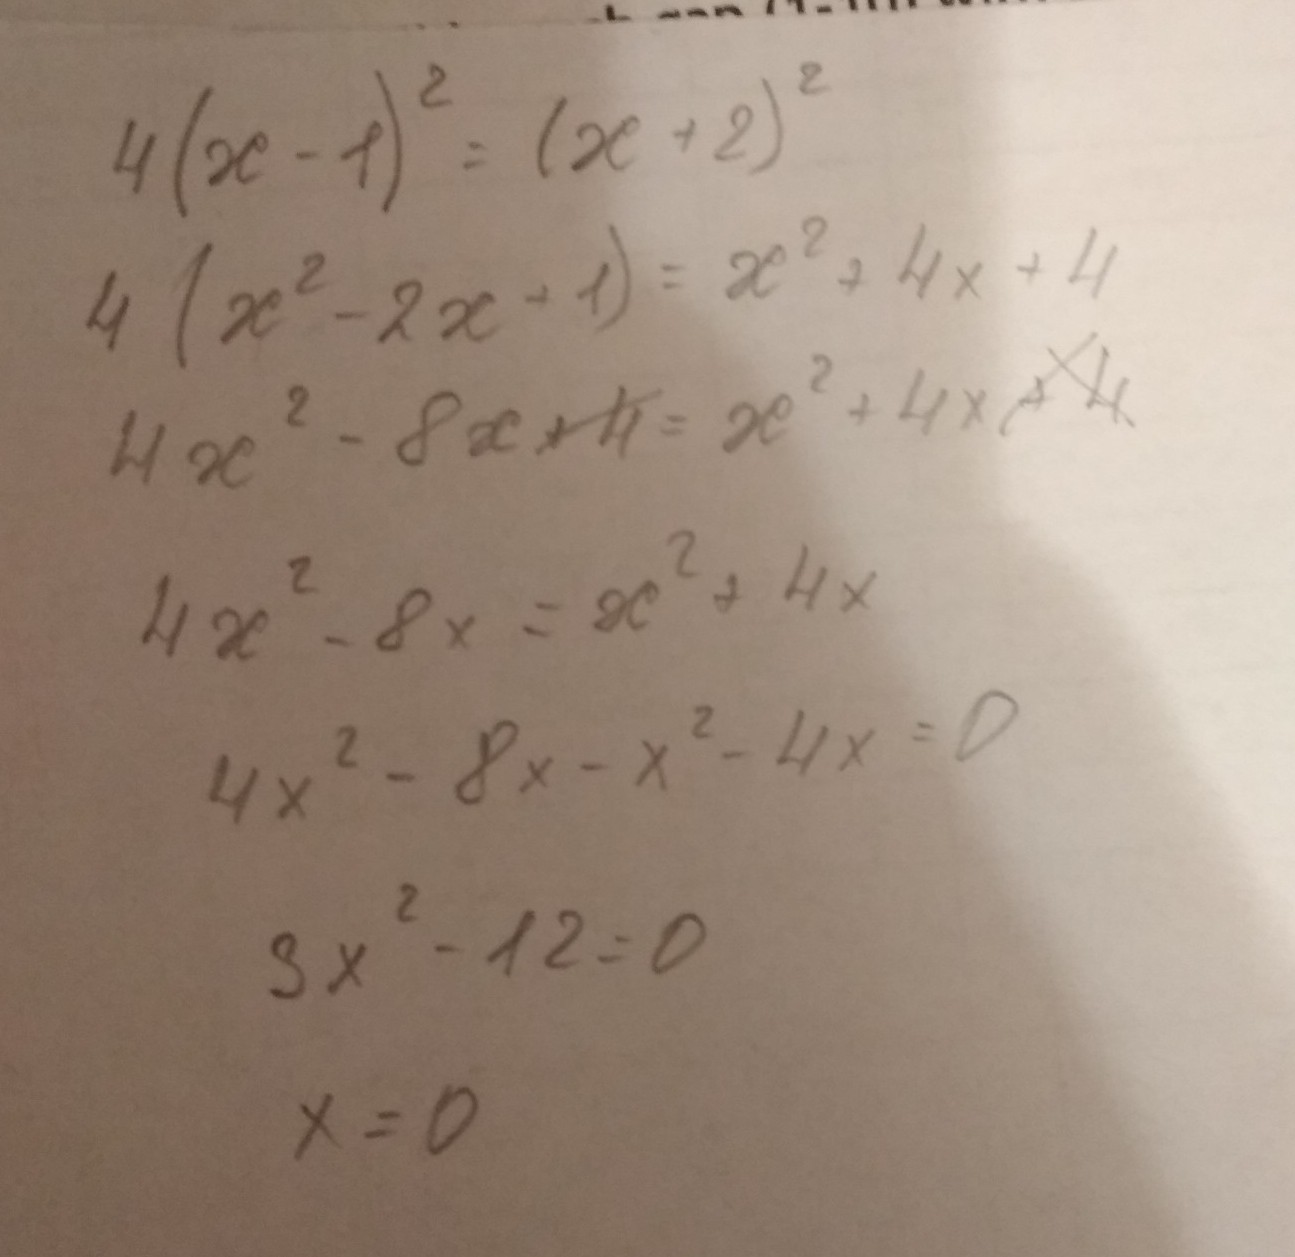 4(x-1)² = (x+2)²
4(x²-2x+1) = x²+4x+4
4x²-8x+4 = x²+4x+4
4x²-8x = x²+4x
4x²-8x-x²-4x=0
3x²-12=0
x=0